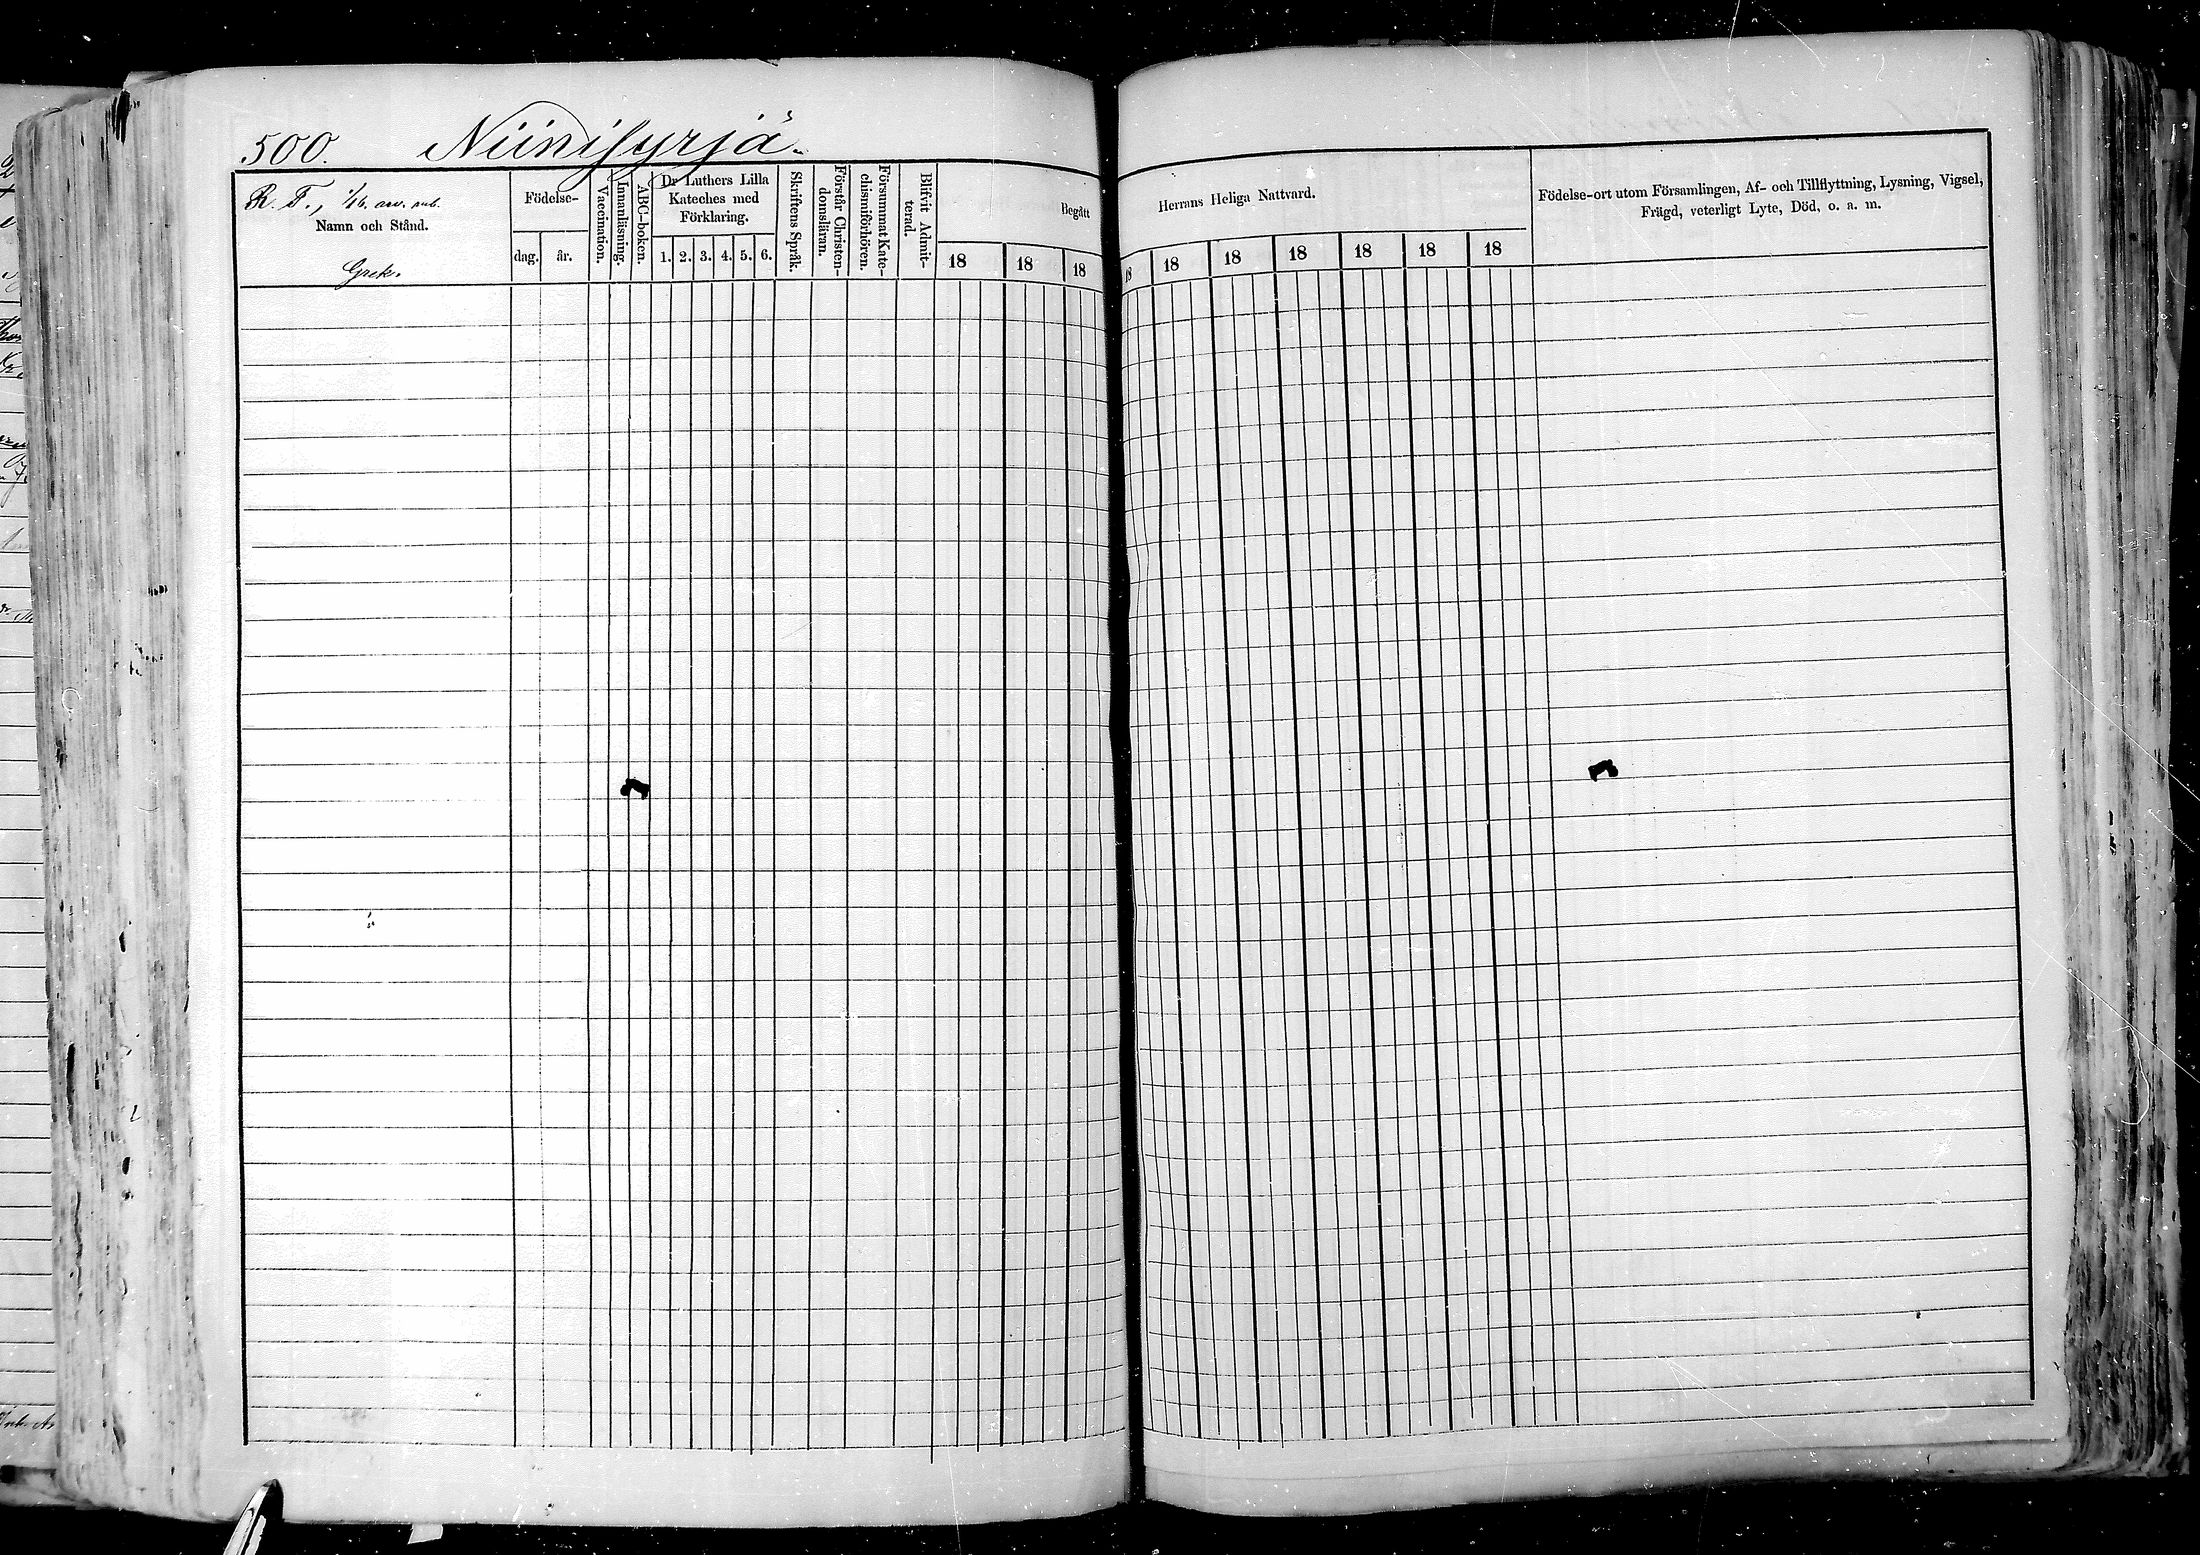 500. Niinisyrjä.
R. T., 1/16. arv. rub.
Namn och Stånd.
Grek.
Födelse-
dag. år.
Vaccination.
Innanläsning.
ABC-boken.
Dr Luthers Lilla
Kateches med
Förklaring.
1. 2. 3. 4. 5. 6.
Skriftens Språk.
Förstår Christen-
domsläran.
Försummat Kate-
chismiförhören.
Blifvit Admit-
terad.
Begått
18 18 18
Herrans Heliga Nattvard.
18 18 18 18 18 18 18
Födelse-ort utom Församlingen, Af- och Tillflyttning, Lysning, Vigsel,
Frägd, veterligt Lyte, Död, o. a. m.